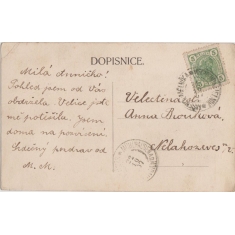 DOPISNICE.
Milá Anničko!
Pohled jsem od Vás
obdržela. Velice jste
mě potěšila. Jsem
doma na posvícení.
Srdečný pozdrav od
M. M.
Velectěná
Anna
Nelahozeves